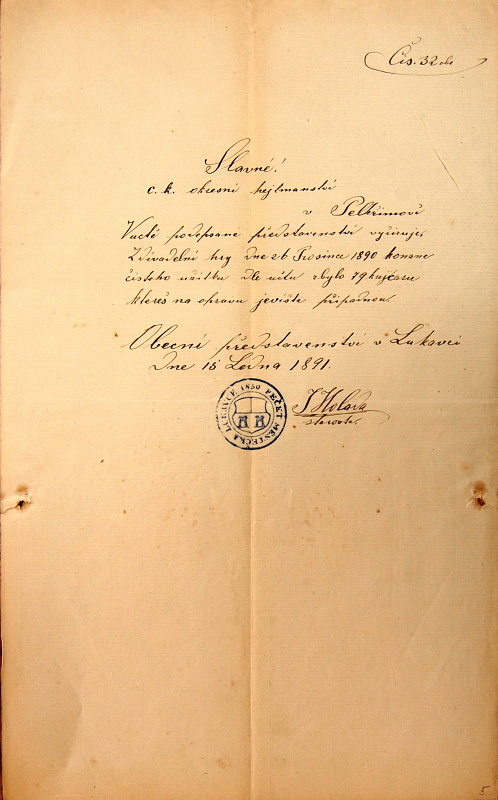 Čís. 32 obc
Slavné!
c. k. okresní hejtmanství
v Pelhřimově
Uctě podepsané představenství vyřizuje,
Z divadelní hry dne 26 Prosince 1890 konané
čistého užitku dle účtu zbylo 79 kr
kteréž na opravu jeviště připadnou.
Obecní představenství v Lukavci
Dne 15 Ledna 1891.
PEČEŤ MĚSTEČKA LUKAVCE 1850
J Holada
starosta.
5